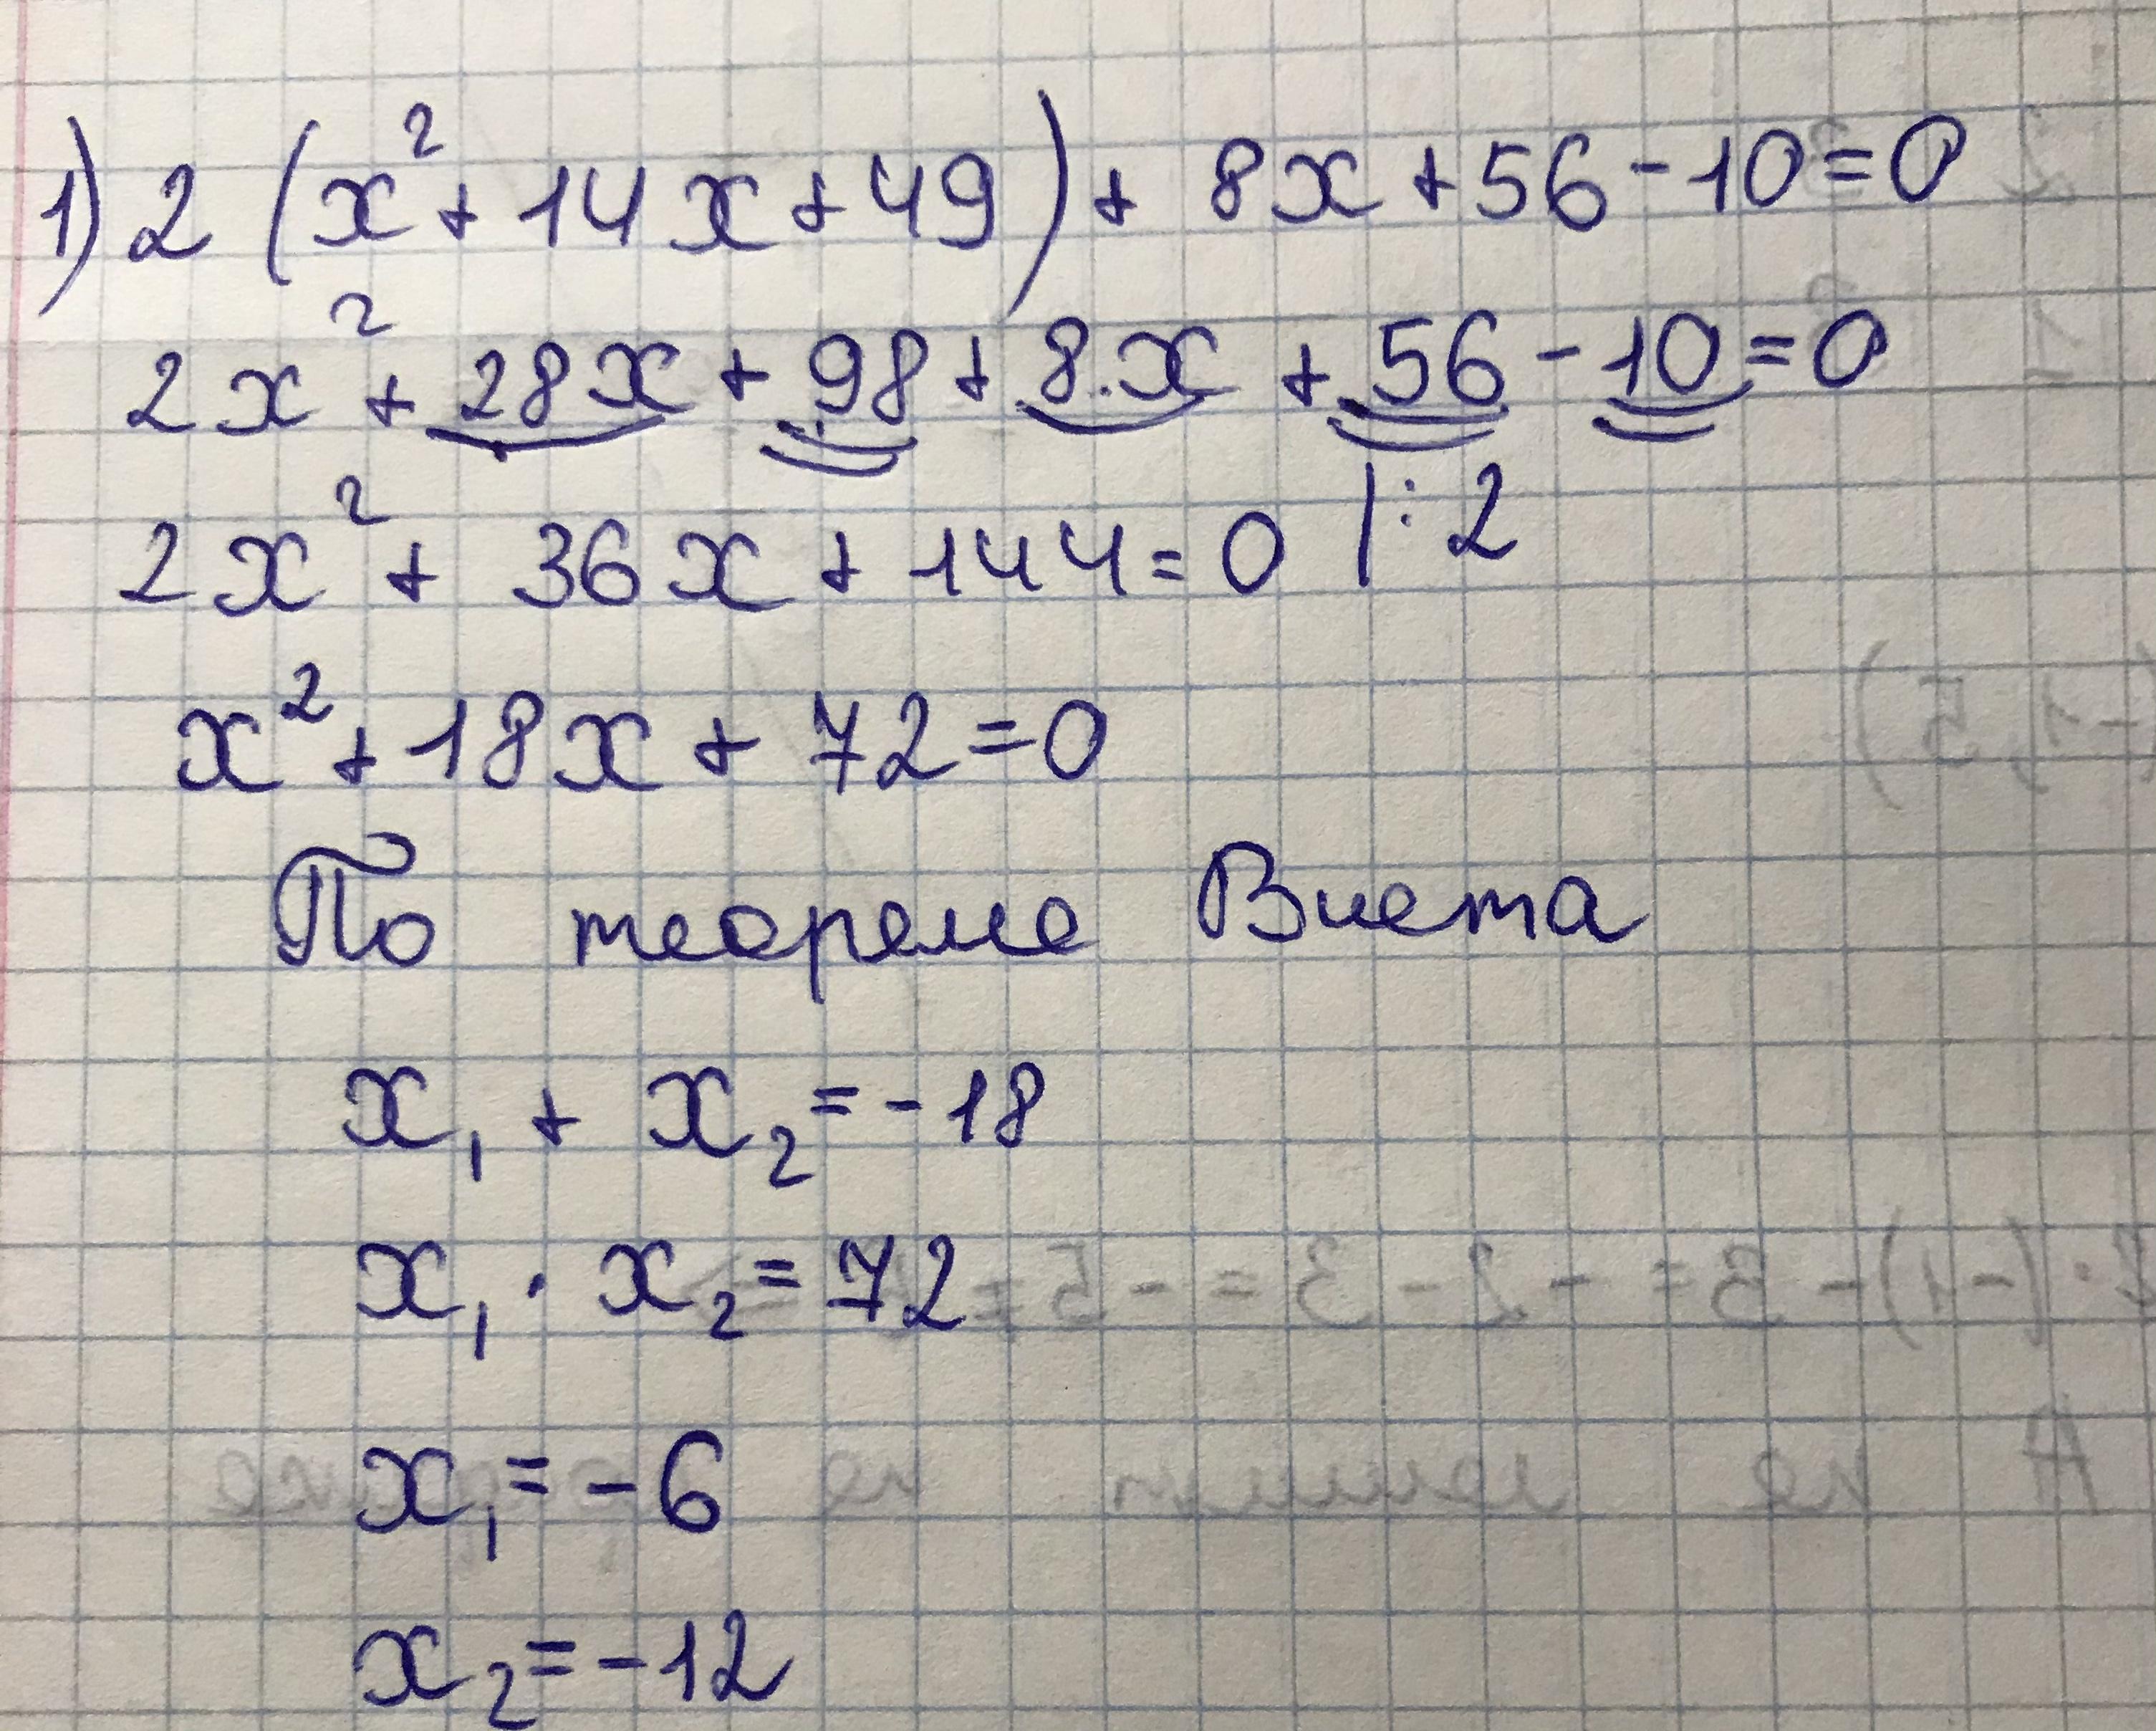 1) 2 (x² + 14x + 49) + 8x + 56 - 10 = 0
2x² + 28x + 98 + 8.x + 56 - 10 = 0
2x² + 36x + 144 = 0 | : 2
x² + 18x + 72 = 0
По теореме Виета
x₁ + x₂ = -18
x₁ · x₂ = 72
x₁ = -6
x₂ = -12